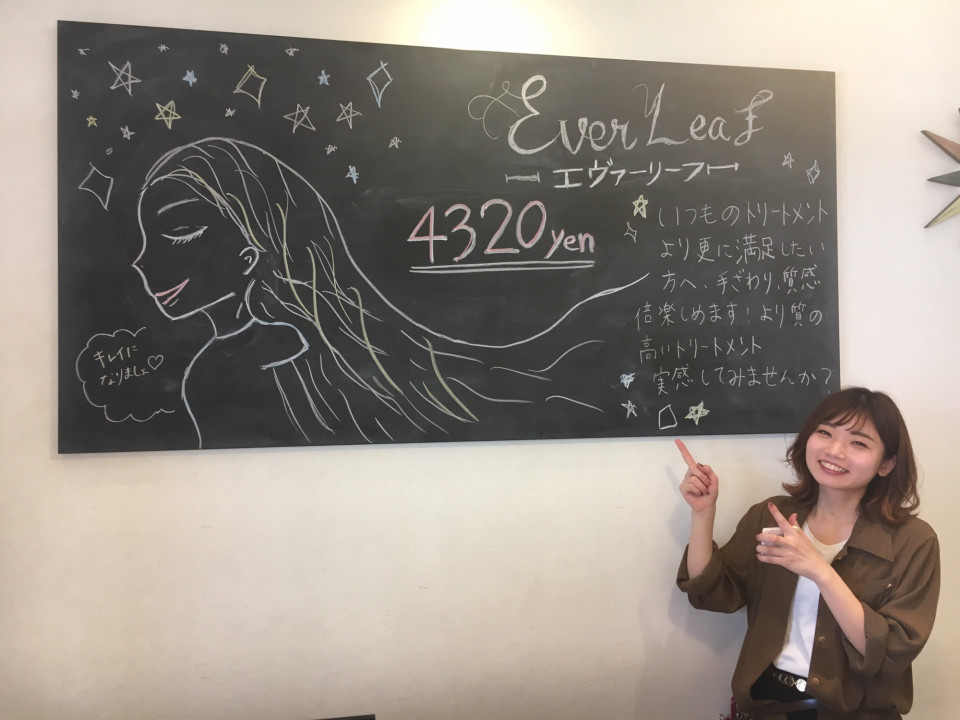 Ever Leaf
エヴァーリーフ
4320yen
いつものトリートメント
より更に満足したい
方へ、手ざわり、質感
倍楽しめます！より質の
高いトリートメント
実感してみませんか？
キレイに
なりましょ♡